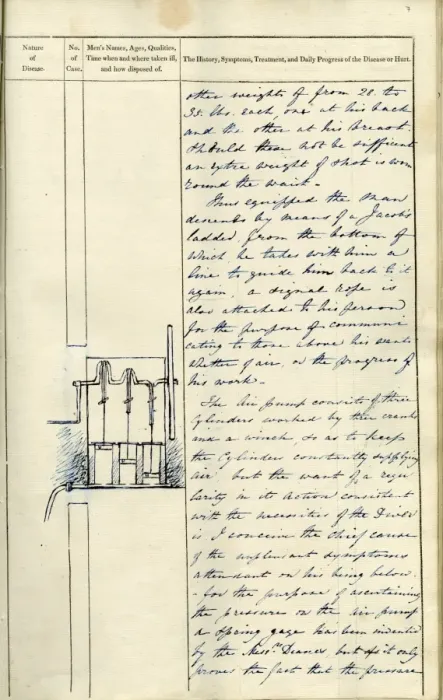 7
Nature
of
Disease.
No.
of
Case.
Men's Names, Ages, Qualities,
Time when and where taken ill,
and how disposed of.
The History, Symptoms, Treatment, and Daily Progress of the Disease or Hurt.
other weights of from 28 to
35 lbs. each, one at his back
and the other at his breast.
Should these not be sufficient
an extra weight of shot is worn
round the waist.-
Thus equipped the man
descends by means of a Jacob's
ladder, from the bottom of
which, he takes with him a
line to guide him back to it
again, a signal rope is
also attached to his person
for the purpose of communi
cating to those above his wants
whether of air, or the progress of
his work.-
The Air pump consists of three
Cylinders worked by three cranks
and a winch, so as to keep
the Cylinders constantly supplying
air, but the want of a regu
larity in its action consistent
with the necessities of the Diver
is I conceive the chief cause
of the unpleasant symptoms
attendant on his being below.
- for the purpose of ascertaining
the pressure on the air pump
a Spring gage has been invented
by the Messrs Deanes, but it only
proves the fact that the pressure